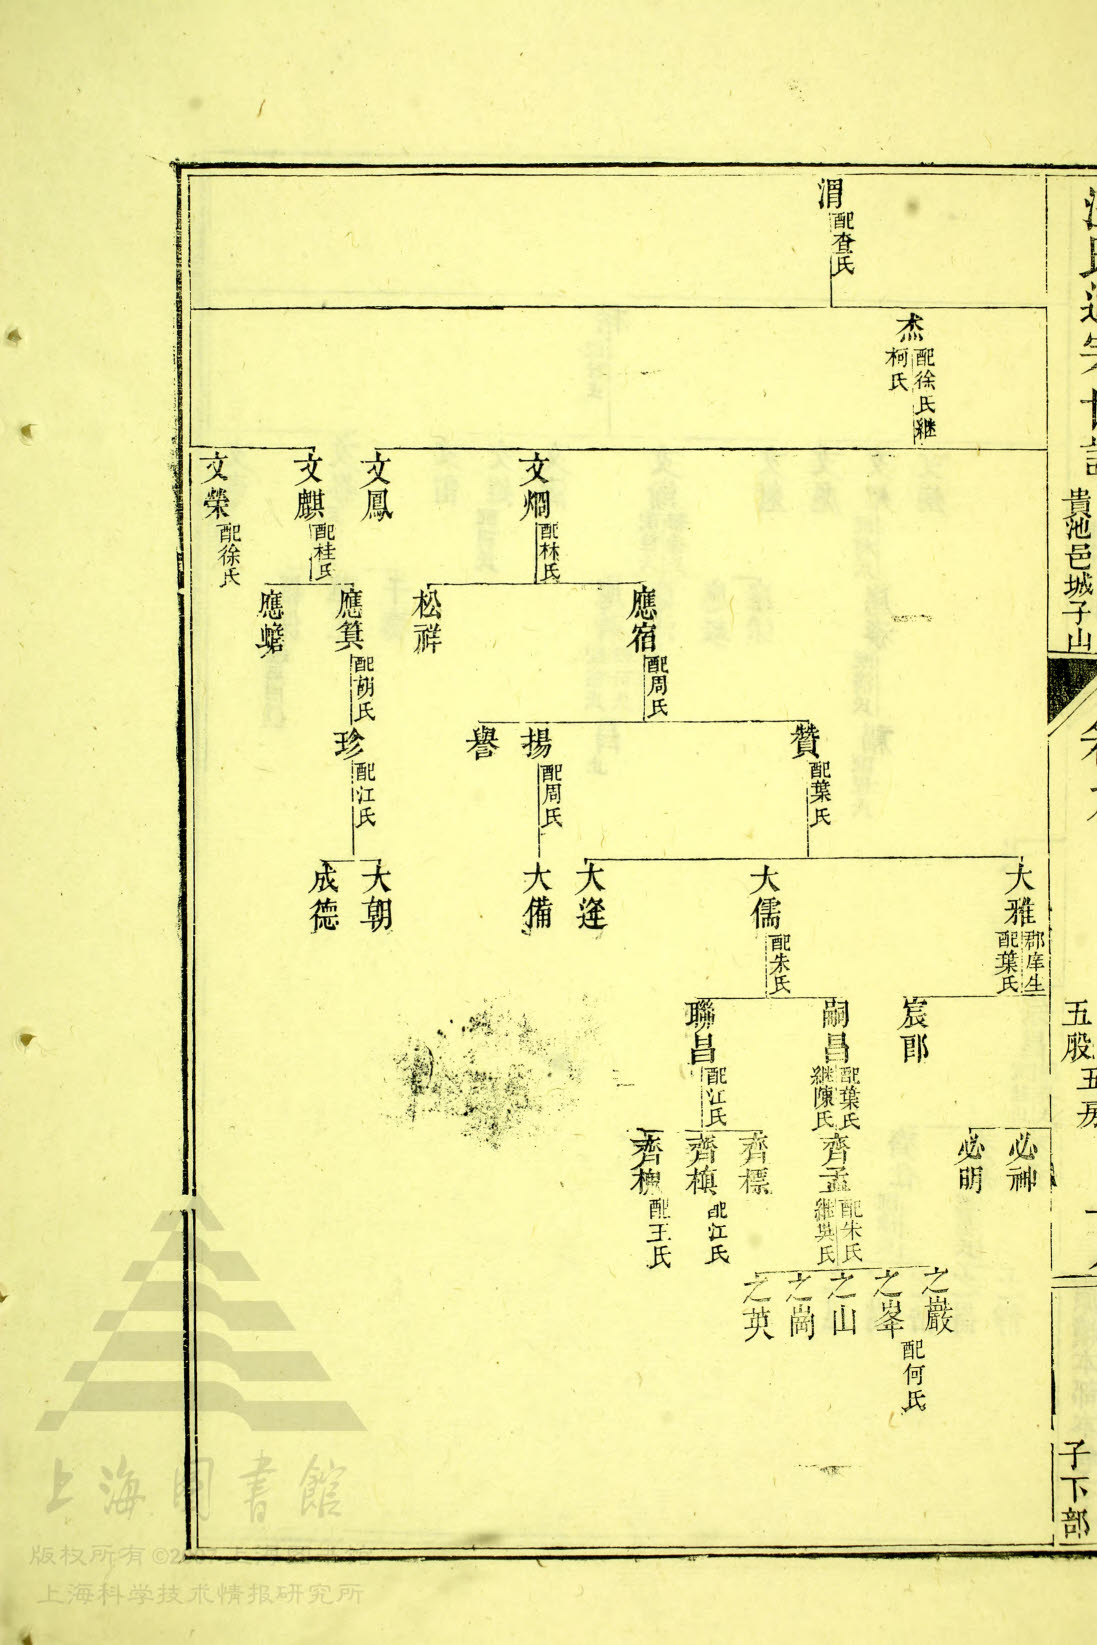 貴池邑城子山
五股五房
子下部
渭
配查氏
杰
配徐氏繼
柯氏
文烱
配林氏
文鳳
文麒
配桂氏
文榮
配徐氏
應宿
配周氏
松祥
應箕
配胡氏
應蟾
贊
配葉氏
揚
配周氏
譽
珍
配江氏
大雅
郡庠生
配葉氏
大儒
配朱氏
大逢
大備
大朝
成德
宸
嗣昌
配葉氏
繼陳氏
聯昌
配江氏
必神
必明
齊孟
配朱氏
繼吳氏
齊標
齊槙
配江氏
齊槐
配王氏
之巖
之峯
配何氏
之山
之崗
之英
上海图書館
版权所有©2007上海图书馆
上海科学技术情报研究所